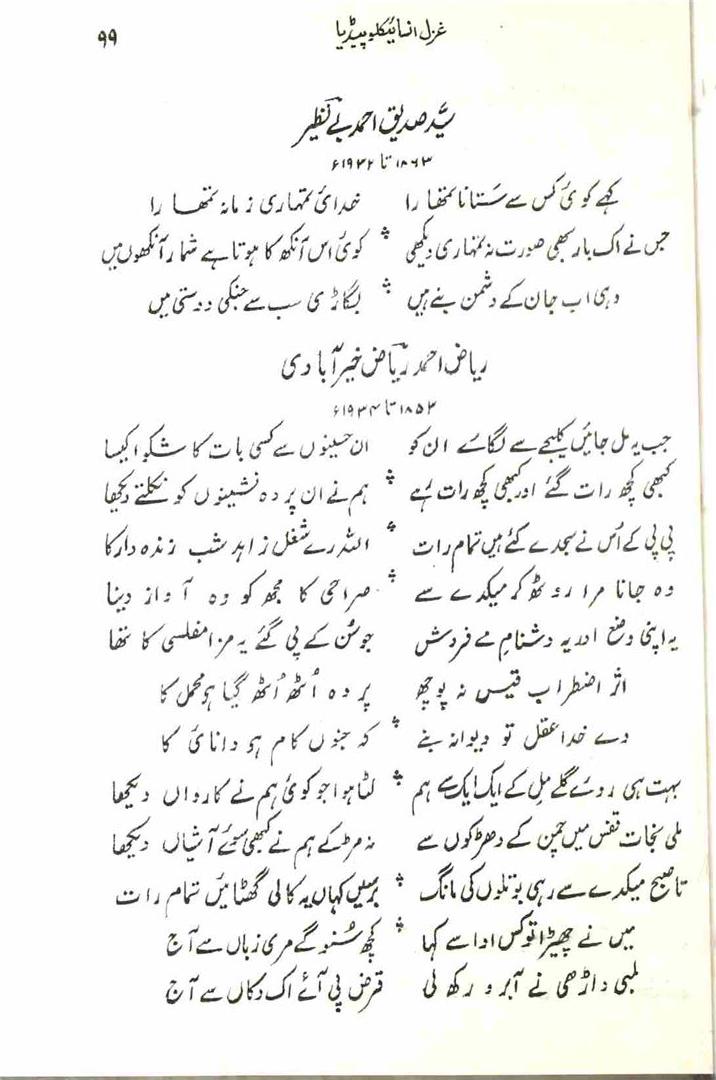 ۹۹ غزل انسائیکلوپیڈیا
سیّد صدیق احمد بے نظیر
۱۸۶۳ تا ۱۹۳۲ء
کہے کوئی کس سے ستانا تمھارا خدائی تمہاری زمانہ تمھارا
جس نے اک بار بھی صورت نہ تمہاری دیکھی کوئی اس آنکھ کا ہوتا ہے شمار آنکھوں میں
وہی اب جان کے دشمن بنے ہیں بگاڑی سب سے جنکی دوستی میں
ریاض احمد ریاض خیرآبادی
۱۸۵۳ تا ۱۹۳۴ء
جب یہ مل جائیں کلیجے سے لگائے ان کو ان حسینوں سے کسی بات کا شکوا کیسا
کبھی کچھ رات گئے اور کبھی کچھ رات رہے ہم نے ان پردہ نشینوں کو نکلتے دیکھا
پی پی کے اُس نے سجدے کئے ہیں تمام رات اللہ رے شغل زاہد شب زندہ دار کا
وہ جانا مرا روٹھ کر میکدے سے صراحی کا مجھ کو وہ آواز دینا
یہ اپنی وضع اور یہ دشنامِ مے فروش جو سُن کے پی گئے یہ مزا مفلسی کا تھا
اثر اضطراب قیس نہ پوچھ پردہ اُٹھ اُٹھ گیا ہو محمل کا
دے خدا عقل تو دیوانہ بنے کہ جنوں کام ہو دانائی کا
بہت ہی روئے گلے مِل کے ایک ایک سے ہم لٹا ہوا جو کوئی ہم نے کارواں دیکھا
ملی نجات قفس میں چمن کے دھڑکوں سے نہ مڑ کے ہم نے کبھی سوئے آشیاں دیکھا
تا صبح میکدے سے رہی بوتلوں کی مانگ برسیں کہاں یہ کالی گھٹائیں تمام رات
میں نے چھیڑا تو کس ادا سے کہا کچھ سُنو گے مری زباں سے آج
لمبی داڑھی نے آبرو رکھ لی قرض پی آئے اک دکاں سے آج